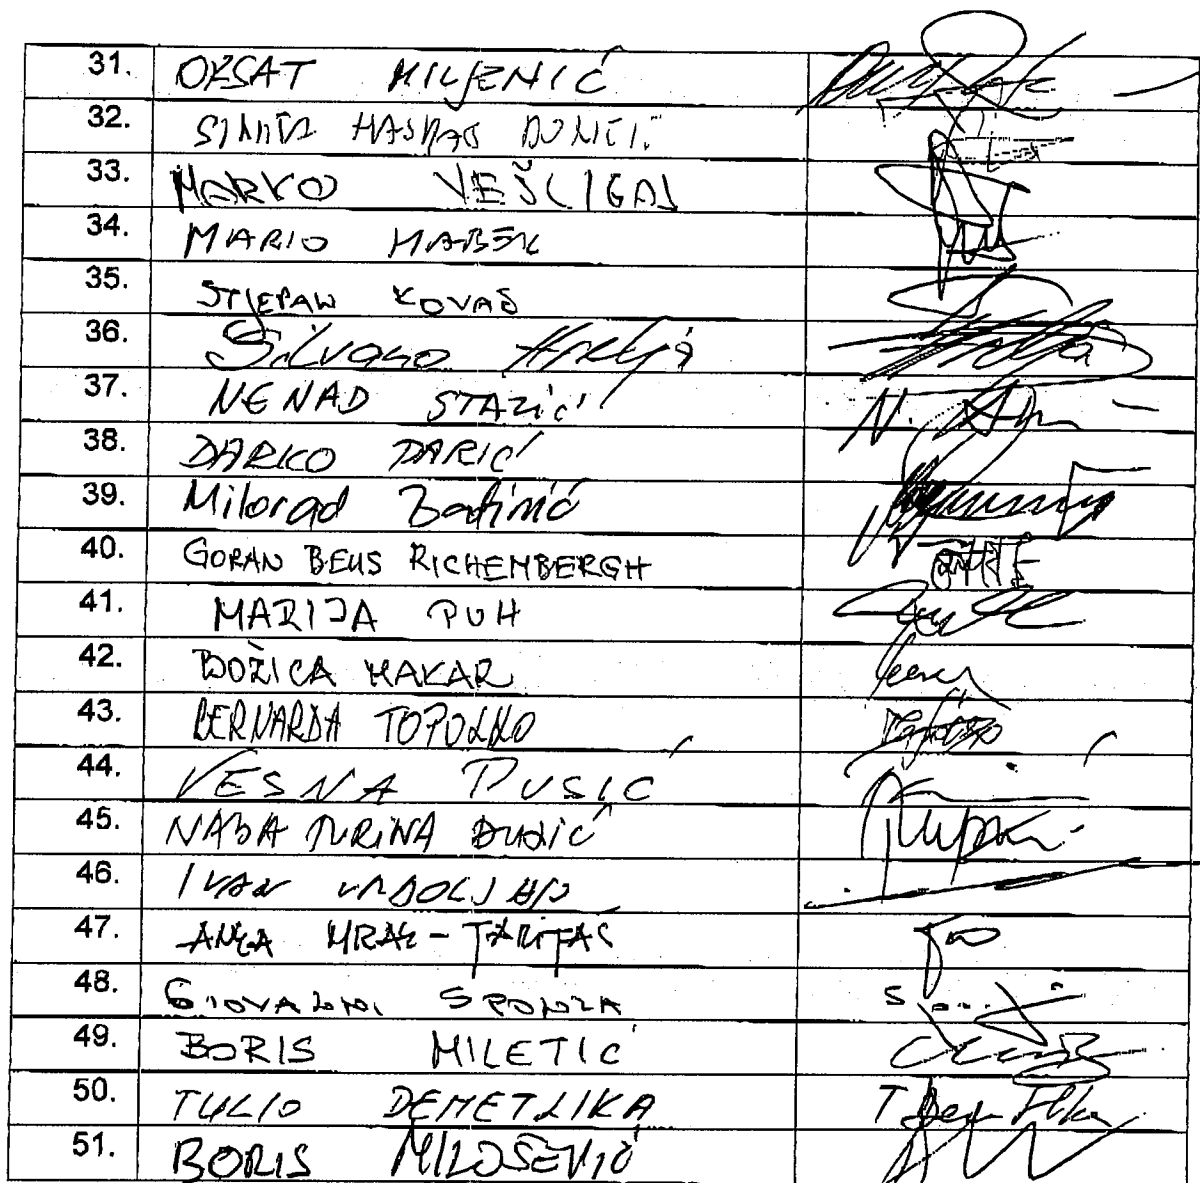 31. ORSAT MILJENIĆ
32. SINIŠA HAJDAŠ DONČIĆ
33. MARKO VEŠLIGAJ
34. MARIO HABEK
35. STJEPAN KOVAČ
36. Silvano Hrelja
37. NENAD STAZIĆ
38. DARKO PARIĆ
39. Milorad Batinić
40. GORAN BEUS RICHEMBERGH
41. MARIJA PUH
42. BOŽICA MAKAR
43. BERNARDA TOPOLKO
44. VESNA PUSIĆ
45. NADA TURINA ĐURIĆ
46. IVAN VRDOLJAK
47. ANKA MRAK-TARITAŠ
48. GIOVANNI SPONZA
49. BORIS MILETIĆ
50. TULIO DEMETLIKA
51. BORIS MILOŠEVIĆ